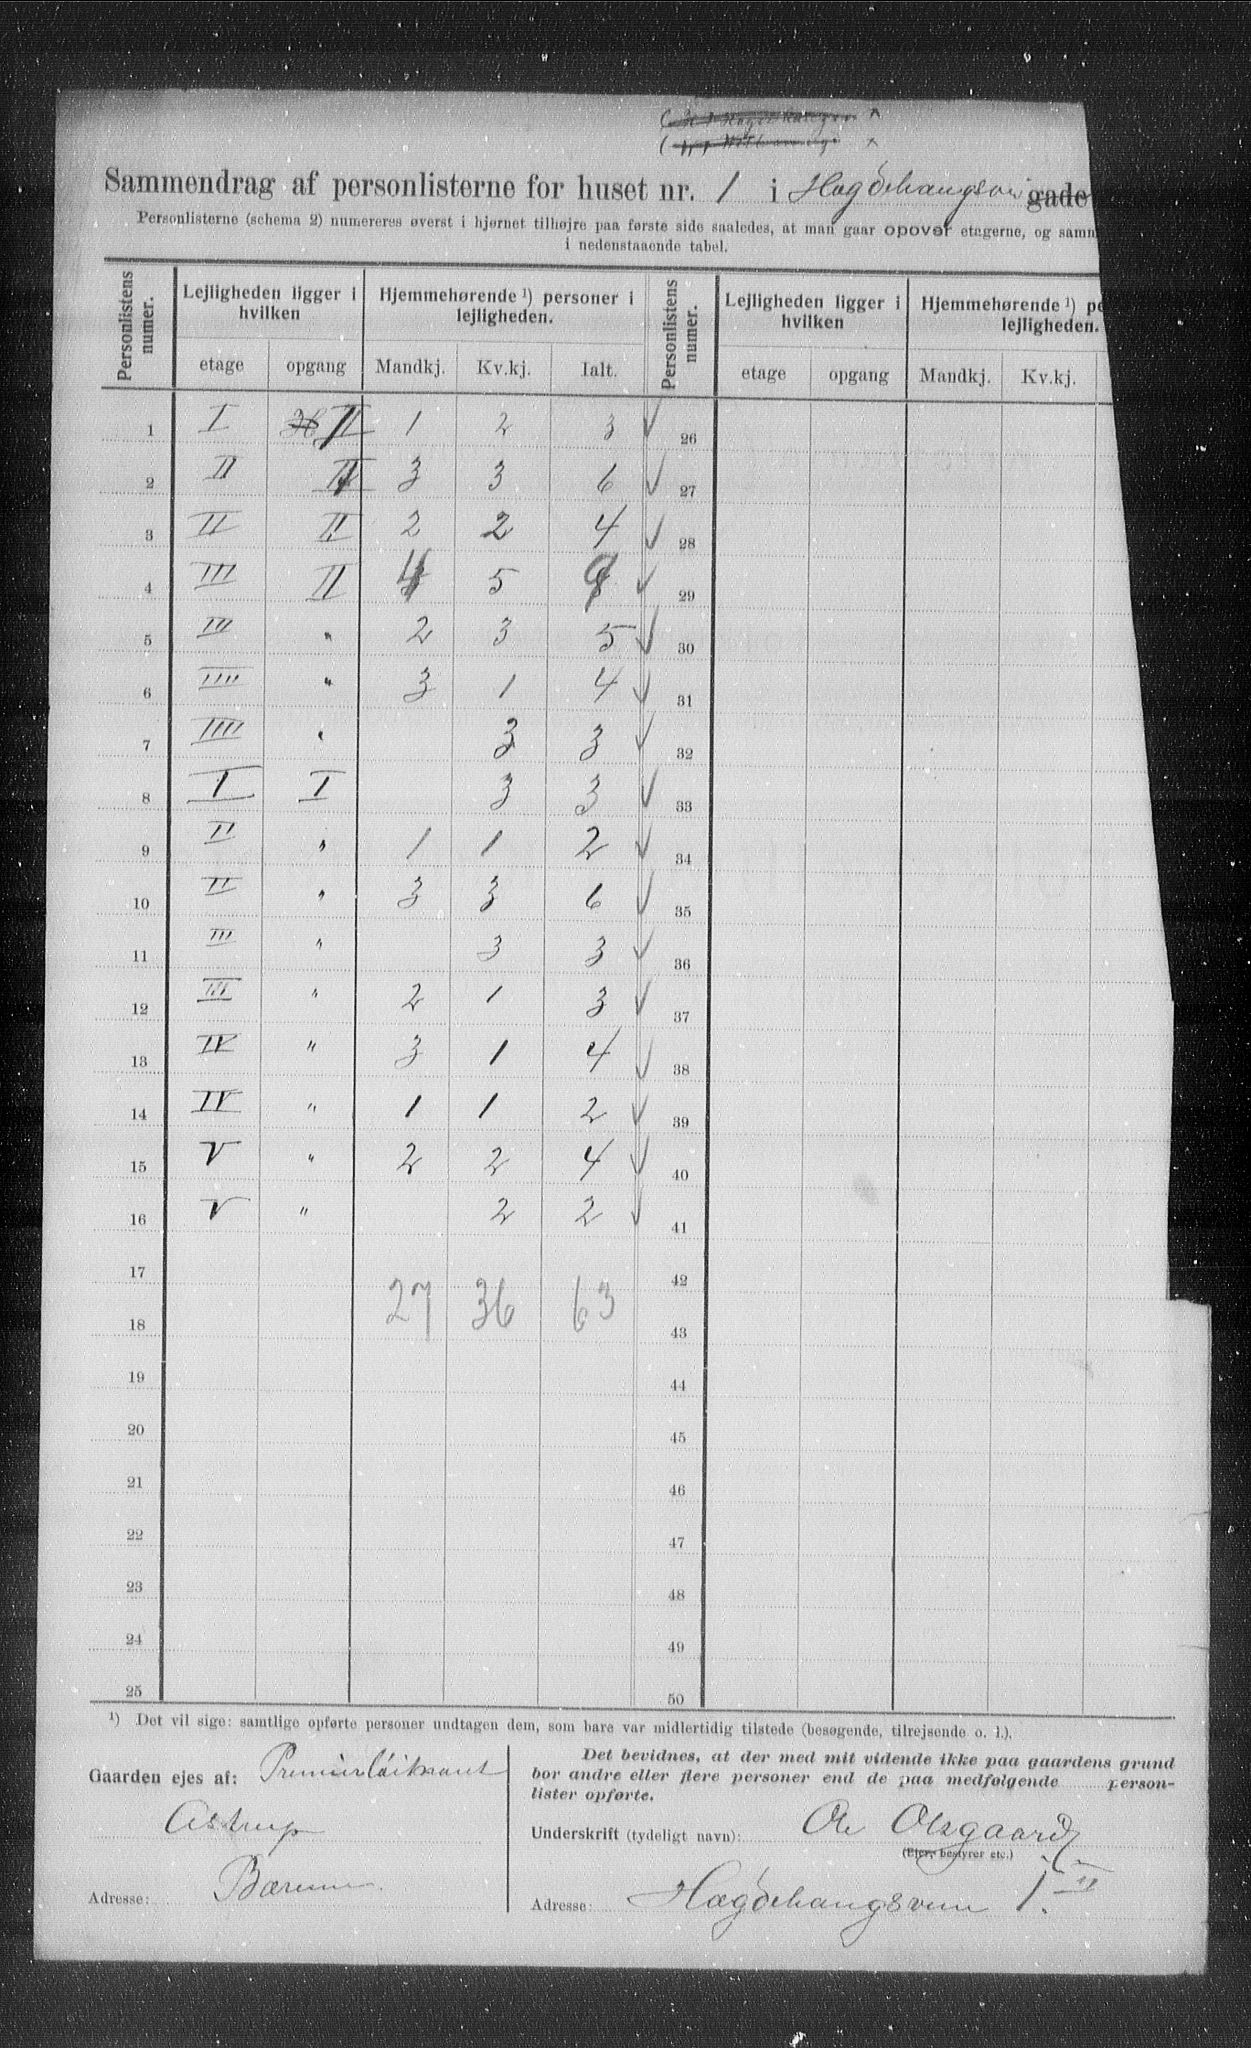 Sammendrag af personlisterne for huset nr. 1 i Hægdehaugsvei gade
Personlisterne (schema 2) numereres øverst i hjørnet tilhøjre paa første side saaledes, at man gaar opover etagerne, og samm
i nedenstaaende tabel.
Personlistens numer. | Lejligheden ligger i hvilken | Hjemmehørende ¹) personer i lejligheden. | Personlistens numer. | Lejligheden ligger i hvilken | Hjemmehørende ¹) pe lejligheden.
etage | opgang | Mandkj. | Kv.kj. | Ialt. | etage | opgang | Mandkj. | Kv.kj.
1 I II 1 2 3 ✓ 26
2 II II 3 3 6 ✓ 27
3 II II 2 2 4 ✓ 28
4 III II 4 5 9 ✓ 29
5 III " 2 3 5 ✓ 30
6 IIII " 3 1 4 ✓ 31
7 IIII " 3 3 ✓ 32
8 I I 3 3 ✓ 33
9 II " 1 1 2 ✓ 34
10 II " 3 3 6 ✓ 35
11 III " 3 3 ✓ 36
12 III " 2 1 3 ✓ 37
13 IV " 3 1 4 ✓ 38
14 IV " 1 1 2 ✓ 39
15 V " 2 2 4 ✓ 40
16 V " 2 2 ✓ 41
17 42
27 36 63
18 43
19 44
20 45
21 46
22 47
23 48
24 49
25 50
¹) Det vil sige: samtlige opførte personer undtagen dem, som bare var midlertidig tilstede (besøgende, tilrejsende o. l.).
Gaarden ejes af: Premierløitnant
Astrup
Adresse: Bærum
Det bevidnes, at der med mit vidende ikke paa gaardens grund
bor andre eller flere personer end de paa medfølgende person-
lister opførte.
Underskrift (tydeligt navn): Ole Olsgaard
(Ejer, bestyrer etc.)
Adresse: Hægdehaugsveien 1. II